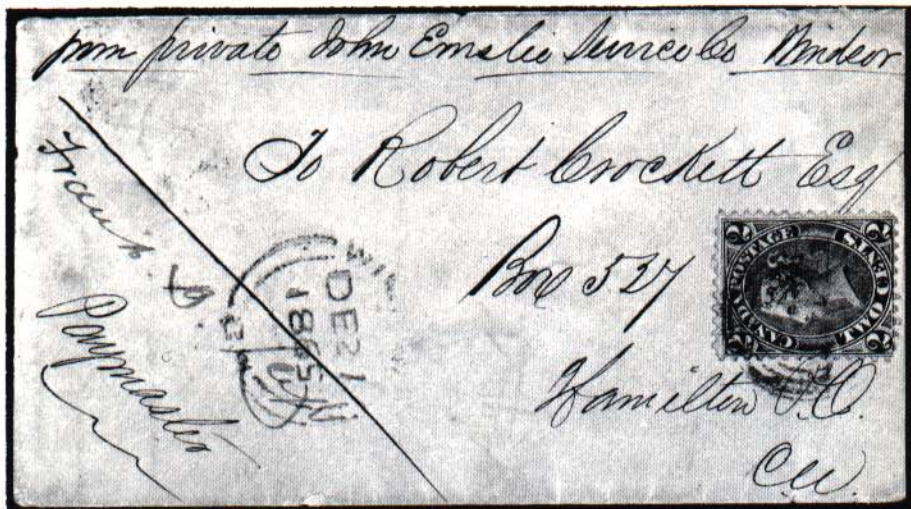 from private John Emslie Service Co Windsor
To Robert Crockett Esq
Box 527
Hamilton P.O.
CW.
Frank D.
Paymaster
DE 21
1865
CANADA POSTAGE
TWO CENTS
2 2 2 2